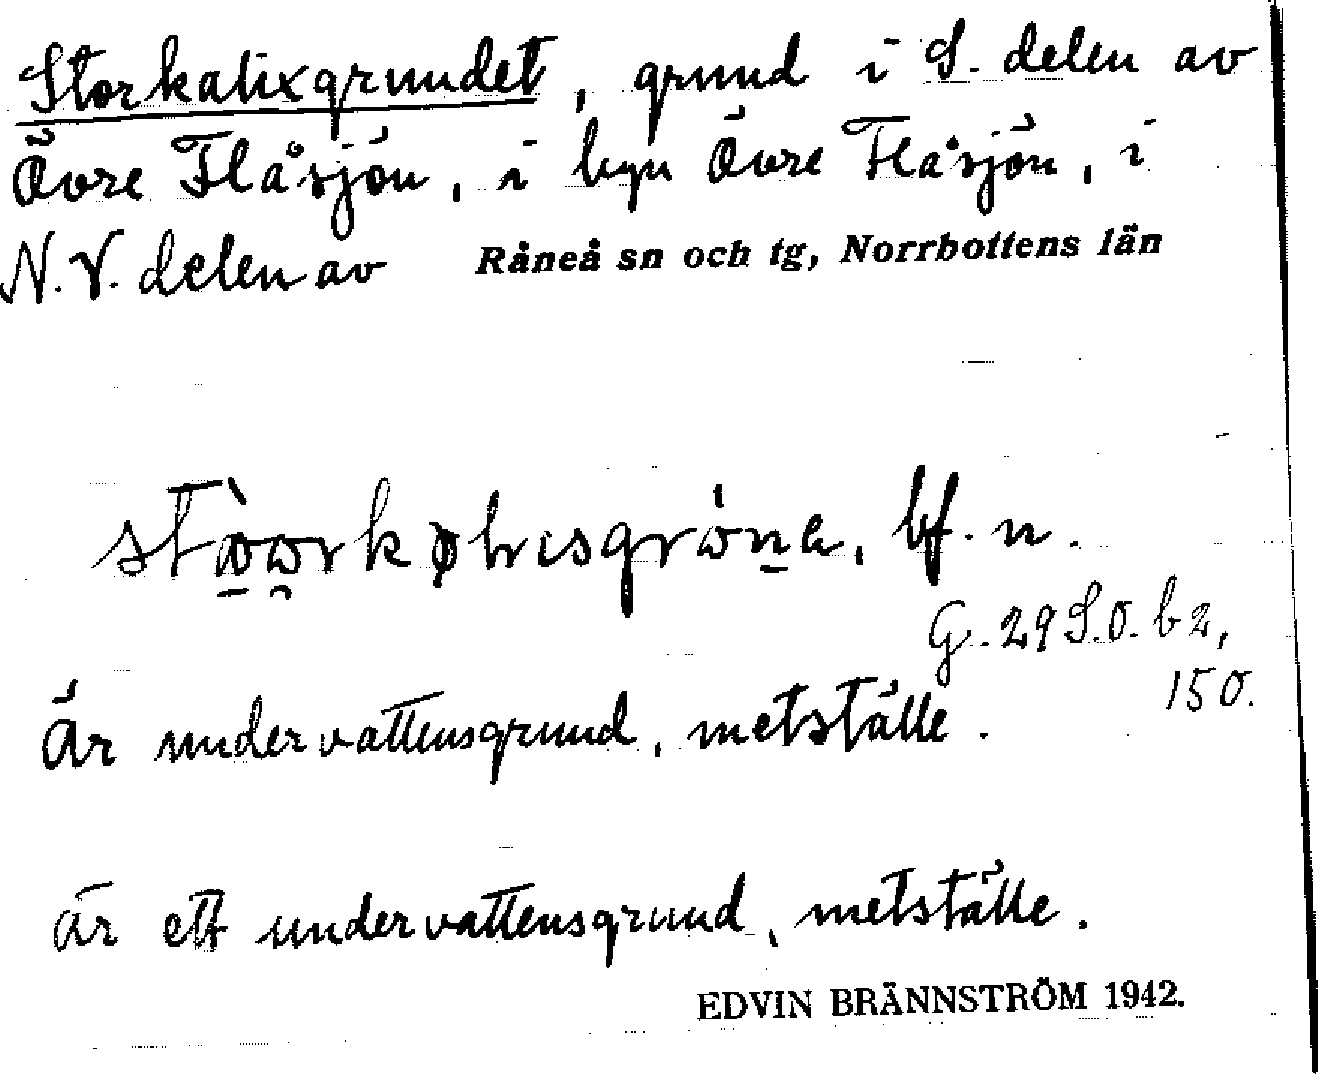 Storkalixgrundet, grund i S. delen av
Övre Flåsjön, i byn Övre Flåsjön, i
N.V. delen av Råneå sn och tg, Norrbottens län
bf. n.
G. 29 S.O. b 2,
150.
Är undervattensgrund, metställe.
är ett undervattensgrund, metställe.
EDVIN BRÄNNSTRÖM 1942.